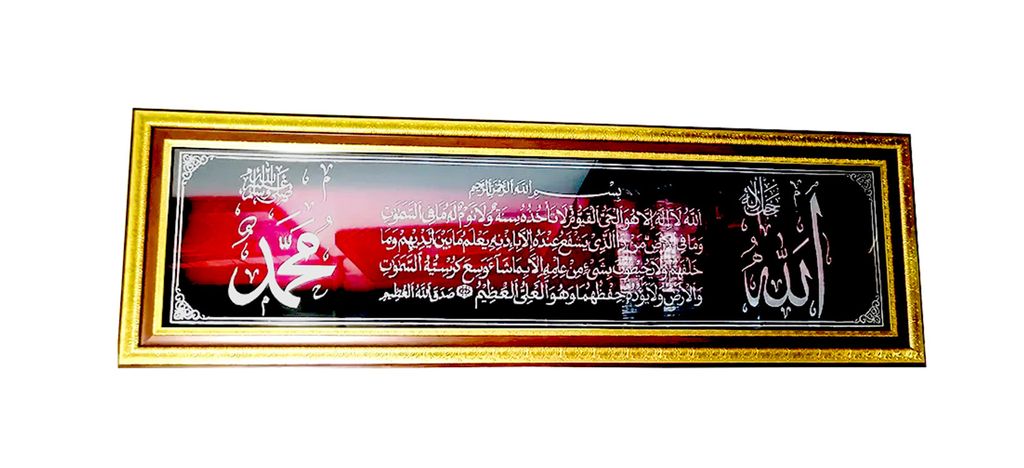 الله
جل جلاله
بسم الله الرحمن الرحيم
الله لا إله إلا هو الحي القيوم لا تأخذه سنة ولا نوم له ما في السموت
وما في الارض من ذا الذي يشفع عنده إلا بإذنه يعلم ما بين أيديهم وما
خلفهم ولا يحيطون بشيء من علمه إلا بما شاء وسع كرسيه السموت
والأرض ولا يؤده حفظهما وهو العلي العظيم صدق الله العظيم
صلى الله عليه وسلم
محمد